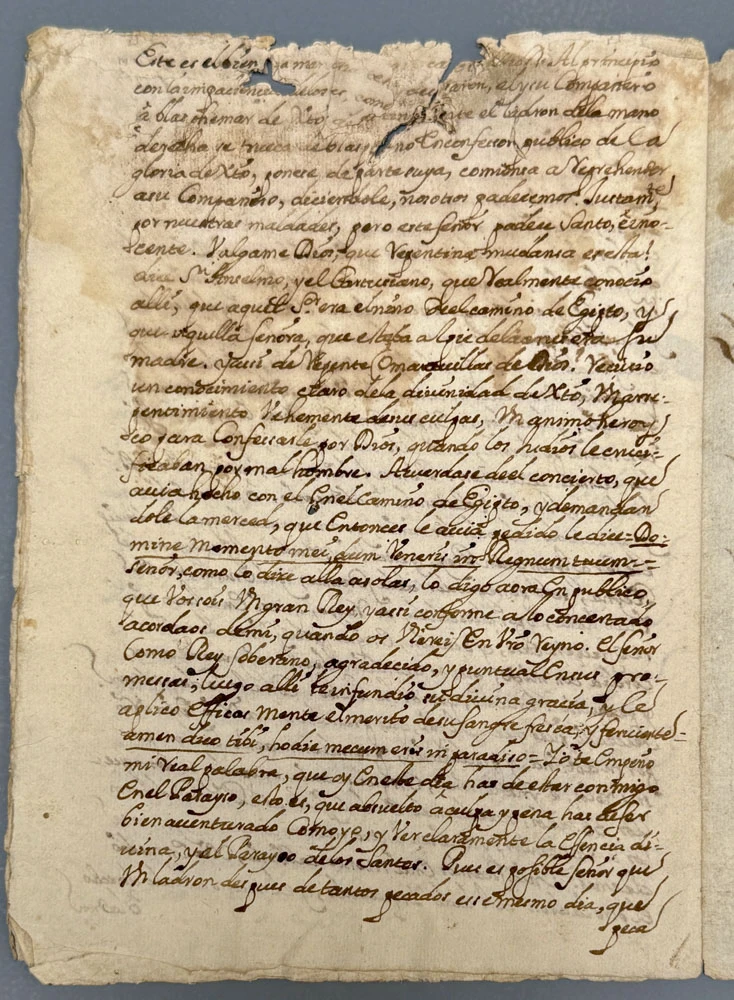 Este es el buen al principio
con la impaciencia dolores, como el y su Compañero
à blasphemar de Xto, el ladron dela mano
derecha se trueca de blasphemo En confessor publico de la
gloria de Xto, ponese de parte suya, comiensa a Reprehender
a su Compañero, diciendole, nosotros padecemos Justamte
por nuestras maldades, pero este señor padece Santo, è ino-
cente. Valgame Dios, que Repentina mudansa es esta!
dice Sn Anselmo, y el Cartusiano, que Realmente conocio
alli, que aquel Sr era el niño deel camino de Egipto, y
que aquella señora, que estaba al pie dela cruz era su
madre. y assi de Repente (ò marauillas de Dios! Reciuio
un conocimiento claro dela diuinidad de Xto, Vn arre-
pentimiento Vehemente de sus culpas, Vn animo heroy
co para Confessarle por Dios, quando los Iudios le cruci-
ficaban por mal hombre. Acuerdase deel concierto, que
auia hecho con el En el Camino de Egipto, y demandan
dole la merced, que Entonces le auia pedido le dice= Do-
mine Memento mei, dum Veneris in Regnum tuum=
Señor, como lo dixe alla a solas, lo digo aora En publico,
que Vos sois Vn gran Rey, y assi conforme a lo concertado
acordaos de mi, quando os Viereis En Vro Reyno. El señor
Como Rey soberano, agradecido, y puntual En sus pro-
messas, luego alli le infundio su diuina gracia, y le
aplico efficas mente el merito de su sangre fresca, y feruiente=
amen dico tibi, hodie mecum eris in paradiso= Yo te Empeño
mi Real palabra, que oy En este dia has de estar conmigo
En el Parayso, esto es, que absuelto a culpa y pena has de ser
bienauenturado Como yo, y Ver claramente la Essencia di-
uina, y el Parayso de los Santos. Pues es posible señor que
Vn ladron despues de tantos pecados esse mesmo dia, que
peca